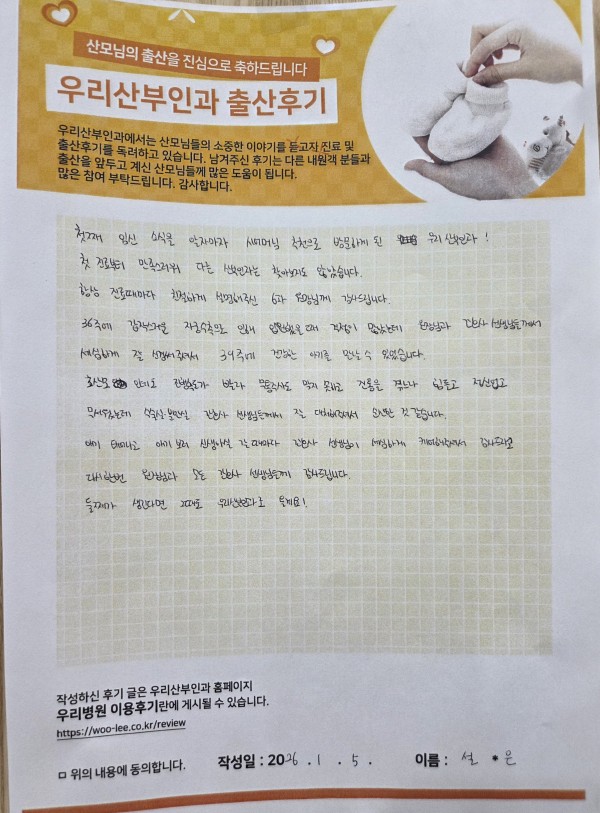 산모님의 출산을 진심으로 축하드립니다
우리산부인과 출산후기
우리산부인과에서는 산모님들의 소중한 이야기를 듣고자 진료 및
출산후기를 독려하고 있습니다. 남겨주신 후기는 다른 내원객 분들과
출산을 앞두고 계신 산모님들께 많은 도움이 됩니다.
많은 참여 부탁드립니다. 감사합니다.
첫째 임신 소식을 알자마자 시어머님 추천으로 방문하게 된 우리 산부인과!
첫 진료부터 만족스러워 다른 산부인과는 찾아보지도 않았습니다.
항상 진료때마다 친절하게 설명해주신 6과 원장님께 감사드립니다.
36주에 갑작스러운 자궁수축으로 인해 입원했을때 걱정이 많았는데 원장님과 간호사 선생님들께서
세심하게 잘 신경써주셔서 39주에 건강한 아기를 만날 수 있었습니다.
초산모 인데도 진행속도가 빨라 무통주사도 맞지 못하고 진통을 겪느라 힘들고 정신없고
무서웠는데 수술실·분만실 간호사 선생님들께서 잘 대처해주셔서 순산한 것 같습니다.
아기 태어나고 아기 보러 신생아실 갈 때마다 간호사 선생님이 세심하게 케어해주셔서 감사드리고
다시한번 원장님과 모든 간호사 선생님들께 감사드립니다.
둘째가 생긴다면 그때도 우리산부인과로 올게요!
작성하신 후기 글은 우리산부인과 홈페이지
우리병원 이용후기란에 게시될 수 있습니다.
https://woo-lee.co.kr/review
ㅁ 위의 내용에 동의합니다. 작성일 : 2026 . 1 . 5 . 이름 : 설 * 은